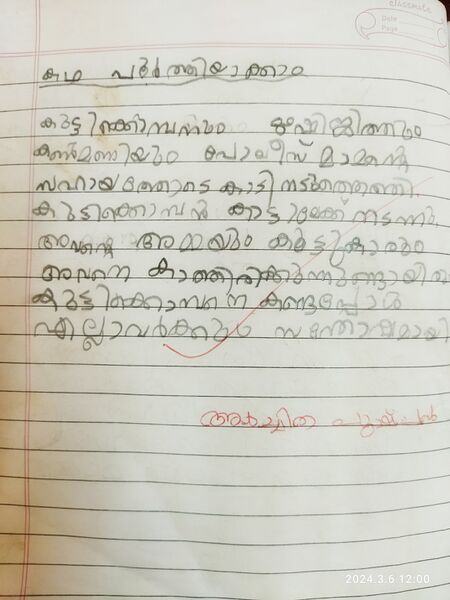 classmate
Date
Page
കഥ പൂർത്തിയാക്കാം
കുട്ടിക്കൊമ്പനും ഋഷിജിത്തും
കൺമണിയും പോലീസ് മാമന്റെ
സഹായത്തോടെ കാട്ടിനടുത്തെത്തി.
കുട്ടിക്കൊമ്പൻ കാട്ടിലേക്ക് നടന്നു.
അവന്റെ അമ്മയും കൂട്ടുകാരും
അവനെ കാത്തിരിക്കുന്നുണ്ടായി
കുട്ടിക്കൊമ്പനെ കണ്ടപ്പോൾ
എല്ലാവർക്കും സന്തോഷമായി
2024.3.6 12:00